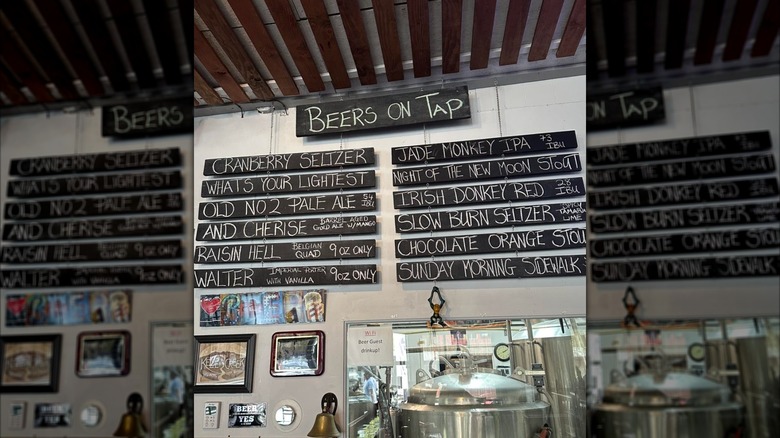 BEERS ON TAP
CRANBERRY SELTZER
WHATS YOUR LIGHTEST
OLD NO.2 PALE ALE 54 IBU
AND CHERISE BARREL AGED GOLD ALE W/MANGO
RAISIN HELL BELGIAN QUAD 9oz ONLY
WALTER IMPERIAL PORTER WITH VANILLA 9oz ONLY
JADE MONKEY IPA 73 IBU
NIGHT OF THE NEW MOON STOUT
IRISH DONKEY RED 28 IBU
SLOW BURN SELTZER SPICY TAMARI LIME
CHOCOLATE ORANGE STOU
SUNDAY MORNING SIDEWALK
Wi-Fi
Beer Guest
drinkup!!
BEER
YES